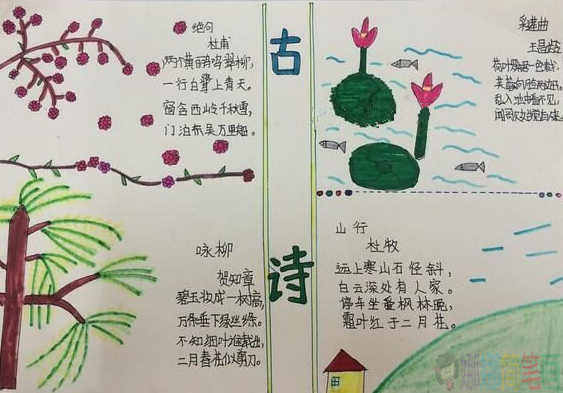 绝句
杜甫
两个黄鹂鸣翠柳,
一行白鹭上青天。
窗含西岭千秋雪,
门泊东吴万里船。
古诗
采莲曲
王昌龄
荷叶罗裙一色裁,
芙蓉向脸两边开。
乱入池中看不见,
闻歌始觉有人来。
咏柳
贺知章
碧玉妆成一树高,
万条垂下绿丝绦。
不知细叶谁裁出,
二月春花似剪刀。
山行
杜牧
远上寒山石径斜,
白云深处有人家。
停车坐爱枫林晚,
霜叶红于二月花。